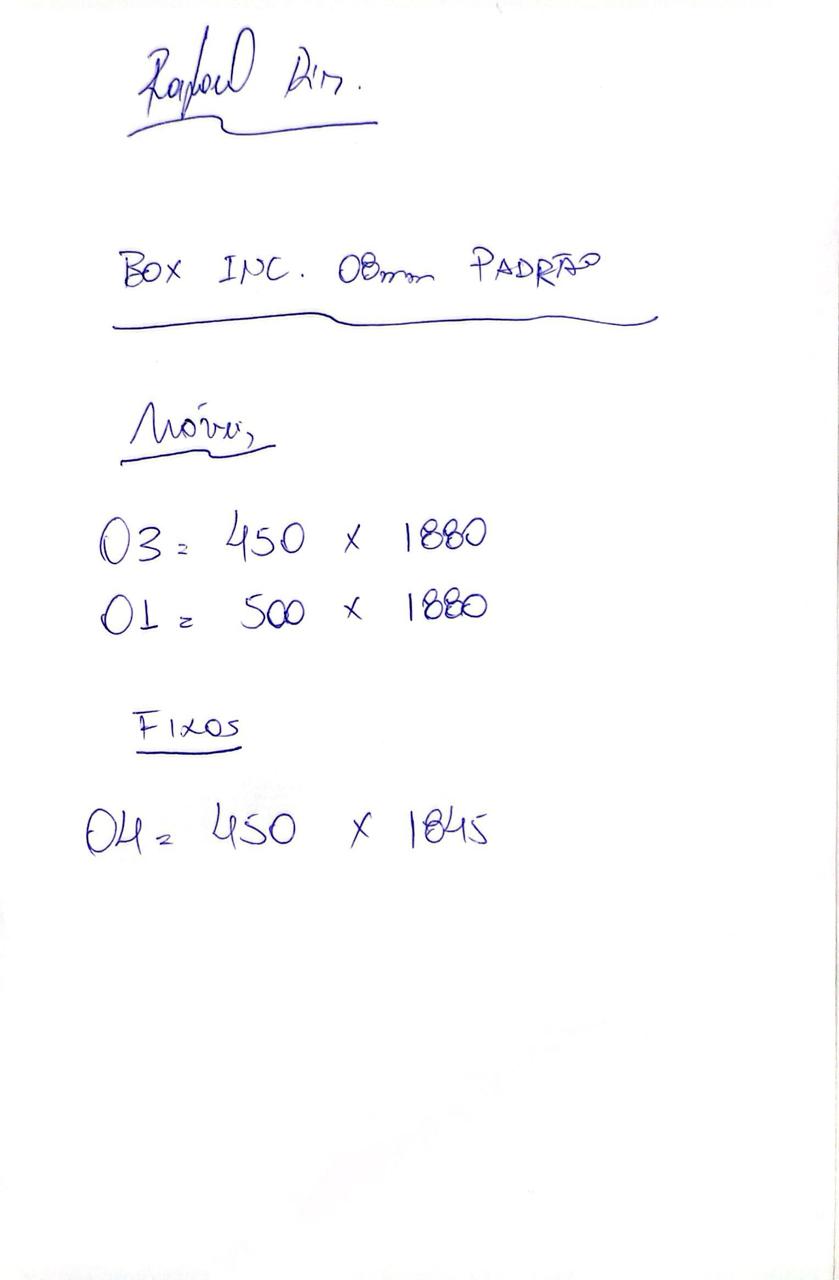 Rafael
BOX INC. 08mm PADRÃO
Móveis
03 = 450 x 1880
01 = 500 x 1880
FIXOS
04 = 450 x 1845